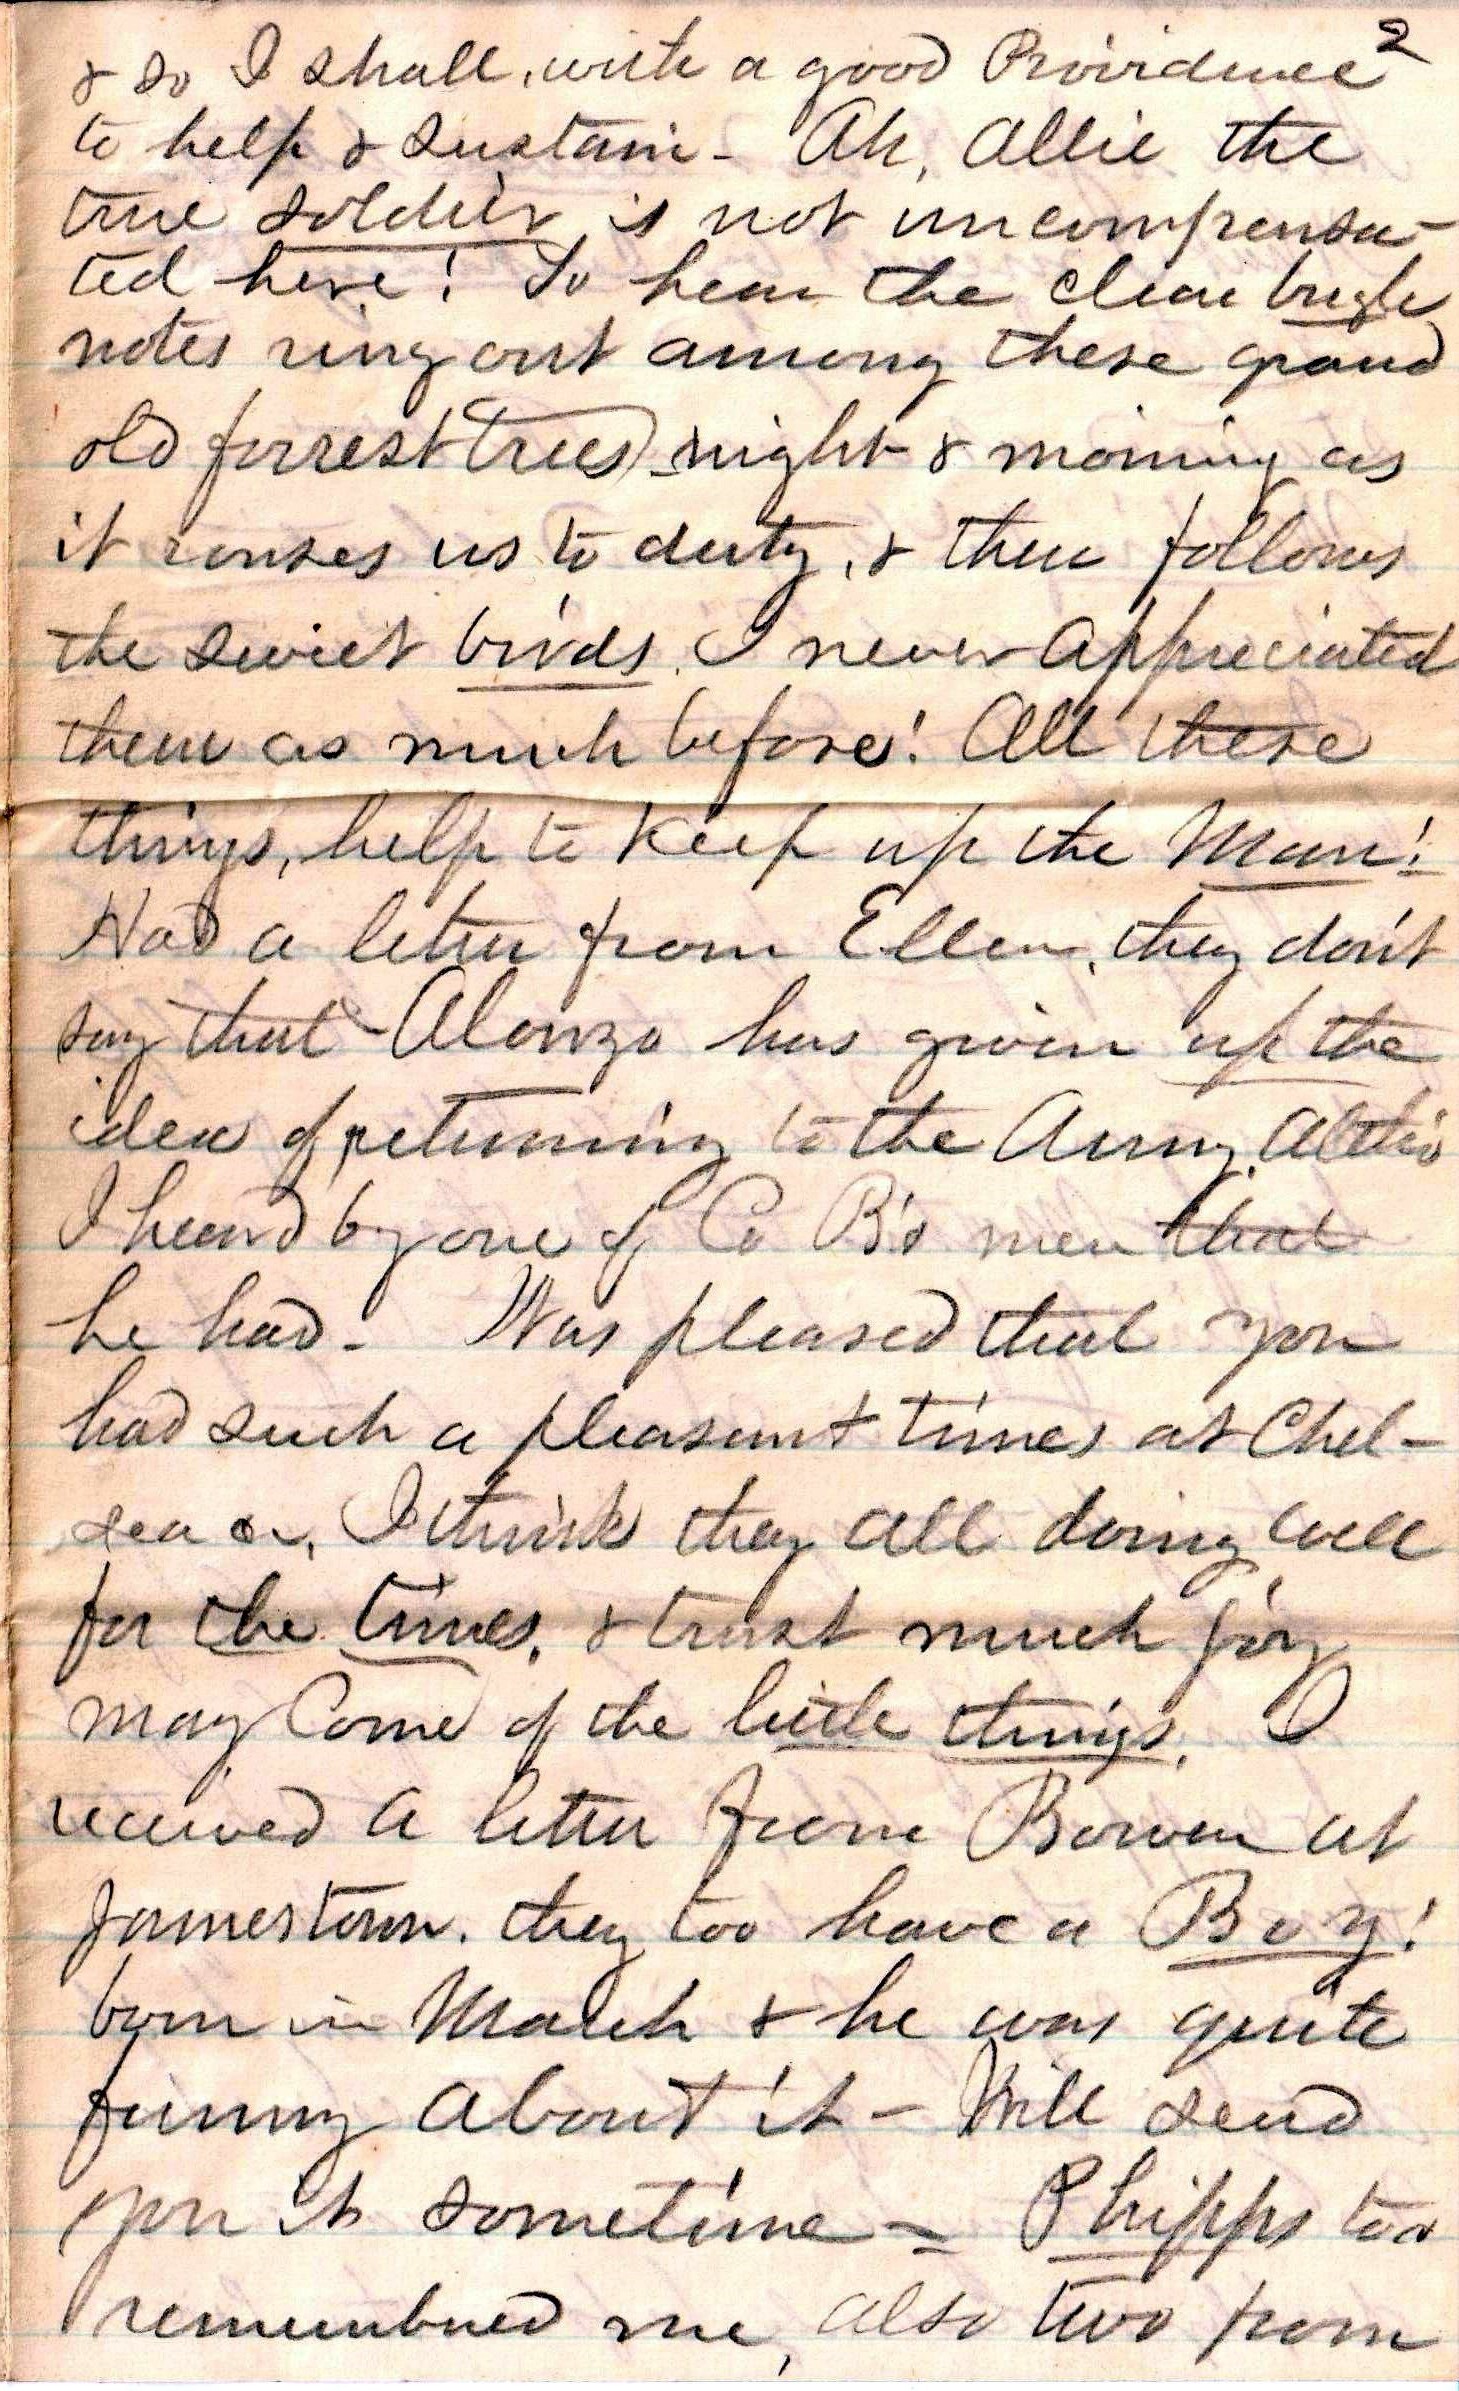 2
& so I shall, with a good Providence
to help & sustain - Ah, Allie the
true soldier is not uncompensa-
ted here! To hear the clear bugle
notes ring out among these grand
old forrest trees, night & morning as
it rouses us to duty, & then follows
the sweet birds. I never appreciated
them as much before! All these
things, help to keep up the Man!
Had a letter from Ellen, they don't
say that Alonzo has given up the
idea of returning to the Army, Altho
I heard by one of Co B's men that
he had - Was pleased that you
had such a pleasant times at Chel-
sea I think they all doing well
for the times, & trust much joy
may Come of the little things. I
received a letter from Bowen at
Jamestown. they too have a Boy!
born in March & he was quite
funny about it - Will send
you it sometime - Phipps too
remembered me, also two from